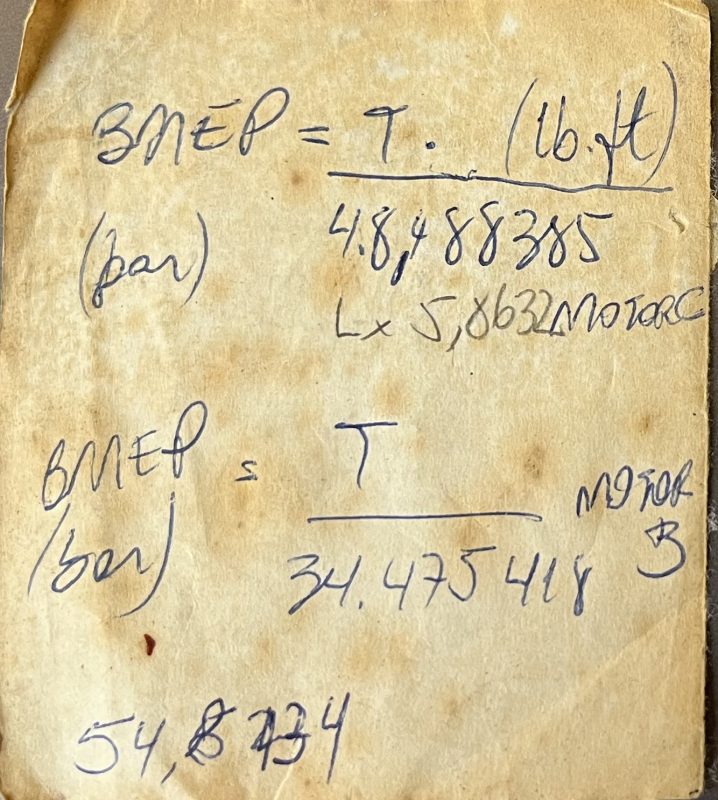 BMEP = T. (lb.ft)
(bar) 48,488385
L x 5,8632 MOTORC
BMEP = T
(bar) 34.475418 MOTOR B
54,